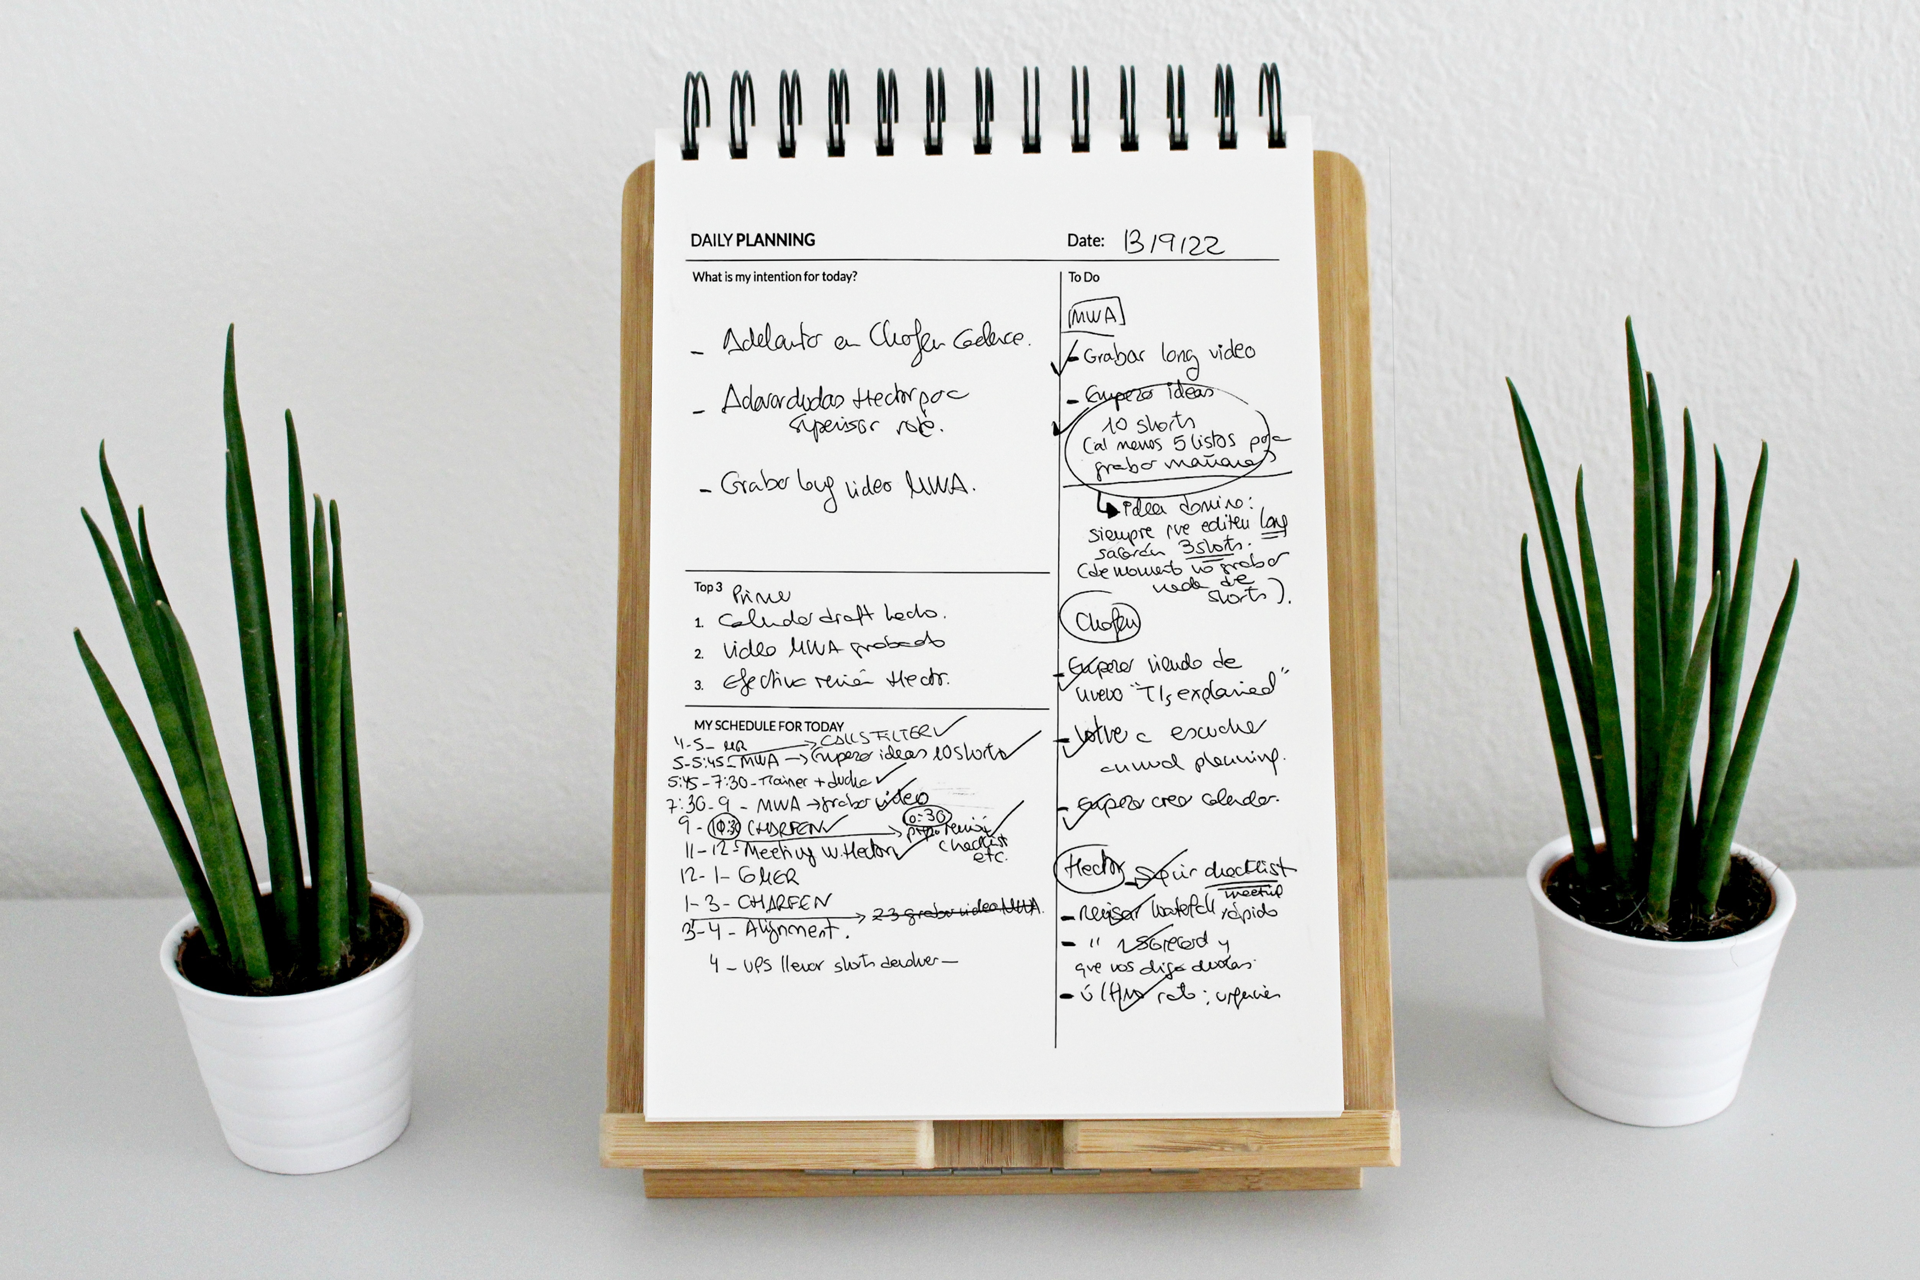 DAILY PLANNING
Date: 13/9/22
What is my intention for today?
- Adelanto en Charfen Cadence.
- Aclarar dudas Hector para
supervisor role.
- Grabar long video MWA.
Top 3
Prime
1. Calendar draft hecho.
2. Video MWA grabado
3. Efectiva reunión Hector.
MY SCHEDULE FOR TODAY
4-5- MR → CALLS FILTER ✓
5-5:45- MWA → Empezar ideas 10 shorts ✓
5:45-7:30- Trainer + ducha ✓
7:30-9 - MWA → grabar video
9 - 10:30 CHARFEN ✓ → 10:30
reunión
checklist
etc.
11-12- Meeting w. Hector ✓
12-1- COMER
1-3- CHARFEN → 2-3 grabar video MWA.
3-4- Alignment.
4 - UPS llevar shorts devolver-
To Do
MWA
✓ - Grabar long video
- Empezar ideas
✓ 10 shorts
(al menos 5 listos para
grabar mañana)
↳ idea domino:
siempre que editen long
sacarán 3 shorts.
(de momento no grabar
nada de
shorts).
Charfen
- Empezar viendo de
nuevo "TI, explained"
- Volver a escuchar
annual planning.
- Empezar crear calendar.
Hector - Seguir checklist
meeting
- revisar rápido
- " record y
que nos diga dudas.
- último rato: urgencias